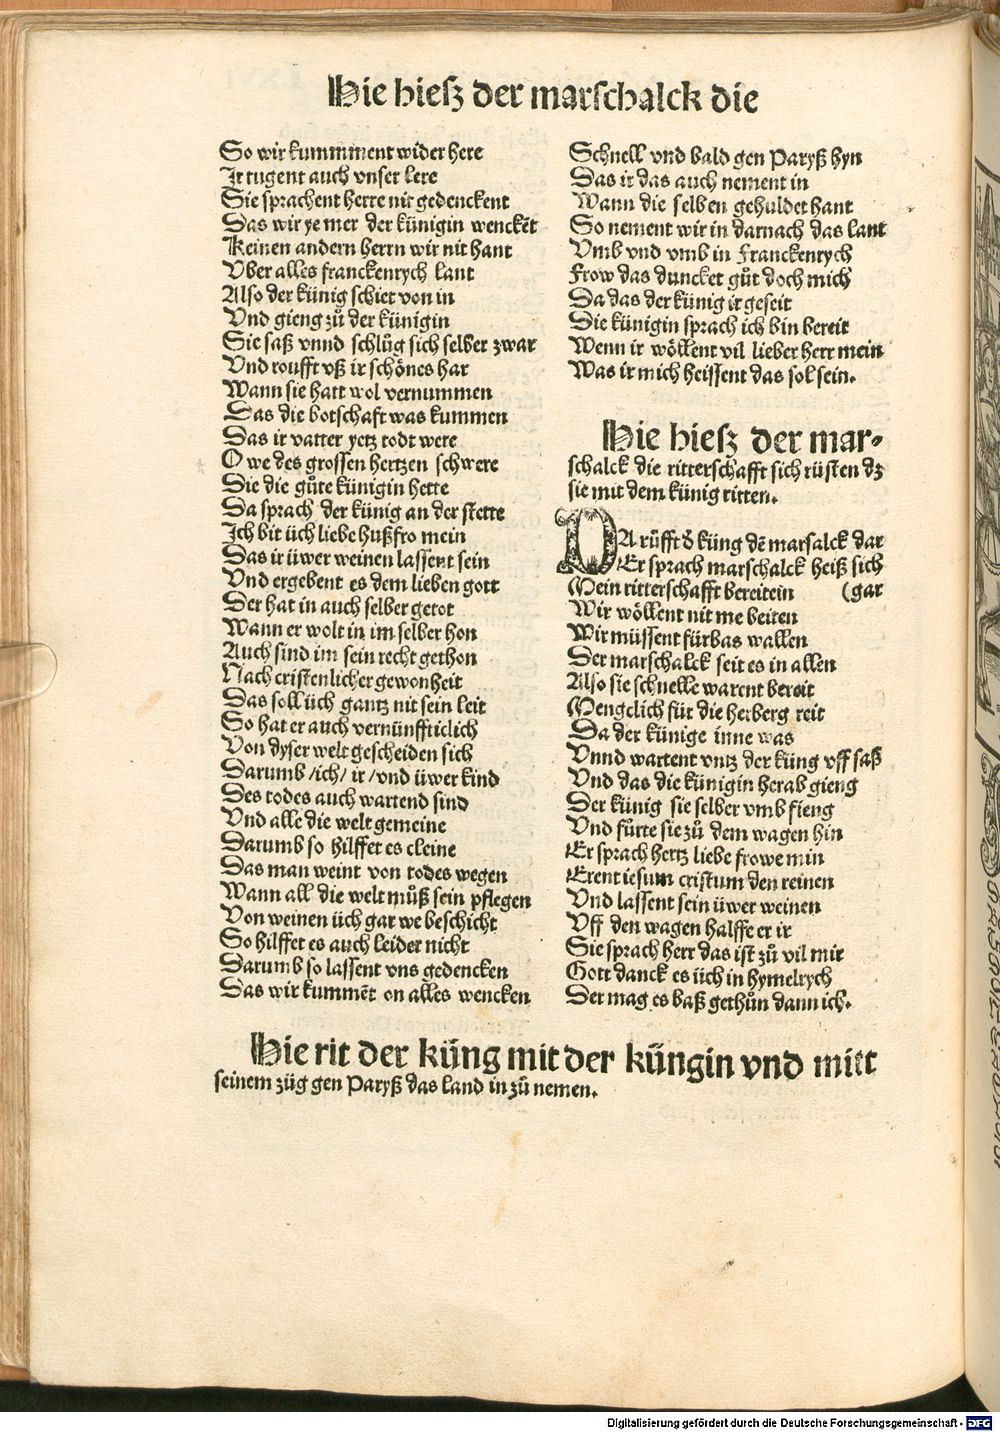 Hie hiesz der marschalck die
So wir kumment wider here
Ir tugent auch vnser lere
Sie sprachent herre nit gedenckent
Das wir ye mer der künigin wenckēt
Keinen andern herrn wir nit hant
Vber alles franckenrych lant
Also der künig schiet von in
Vnd gieng zů der künigin
Sie saß vnnd schlůg sich selber zwar
Vnd roufft vß ir schönes har
Wann sie hatt wol vernummen
Das die botschaft was kummen
Das ir vatter yetz todt were
O we des grossen hertzen schwere
Die die gůte künigin hette
Da sprach der künig an der stette
Ich bit üch liebe hußfro mein
Das ir üwer weinen lassent sein
Vnd ergebent es dem lieben gott
Der hat in auch selber getot
Wann er wolt in im selber hon
Auch sind im sein recht gethon
Nach cristenlicher gewonheit
Das soll üch gantz nit sein leit
So hat er auch vernünffticlich
Von dyser welt gescheiden sich
Darumb /ich/ ir /vnd üwer kind
Des todes auch wartend sind
Vnd alle die welt gemeine
Darumb so hilffet es cleine
Das man weint von todes wegen
Wann all die welt můß sein pflegen
Von weinen üch gar we beschicht
So hilffet es auch leider nicht
Darumb so lassent vns gedencken
Das wir kummēt on alles wencken
Schnell vnd bald gen Paryß hyn
Das ir das auch nement in
Wann die selben gehuldet hant
So nement wir in darnach das lant
Vmb vnd vmb in Franckenrych
Frow das duncket gůt doch mich
Da das der künig ir geseit
Die künigin sprach ich bin bereit
Wenn ir wöllent vil lieber herr mein
Was ir mich heissent das sol sein.
Hie hiesz der mar-
schalck die ritterschafft sich rüsten dz
sie mit dem künig ritten.
DA rüfft d̕ küng dē marsalck dar
Er sprach marschalck heiß sich
Mein ritterschafft bereitein (gar
Wir wöllent nit me beiten
Wir müssent fürbas wallen
Der marschalck seit es in allen
Also sie schnelle warent bereit
Mengclich für die herberg reit
Da der künige inne was
Vnnd wartent vntz der küng vff saß
Vnd das die künigin herab gieng
Der künig sie selber vmb fieng
Vnd fůrte sie zů dem wagen hin
Er sprach hertz liebe frowe min
Erent iesum cristum den reinen
Vnd lassent sein üwer weinen
Vff den wagen halffe er ir
Sie sprach herr das ist zů vil mir
Gott danck es üch in hymelrych
Der mag es baß gethůn dann ich.
Hie rit der küng mit der küngin vnd mitt
seinem züg gen Paryß das land in zů nemen.
Digitalisierung gefördert durch die Deutsche Forschungsgemeinschaft - DFG